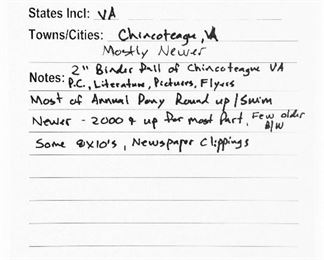 States Incl: VA
Towns/Cities: Chincoteague, VA
Mostly Newer
2" Binder full of Chincoteague VA
Notes: P.C., Literature, Pictures, Flyers
Most of Annual Pony Round up/Swim
Newer - 2000 & up for most part, Few older B/W
Some 8X10's, Newspaper Clippings